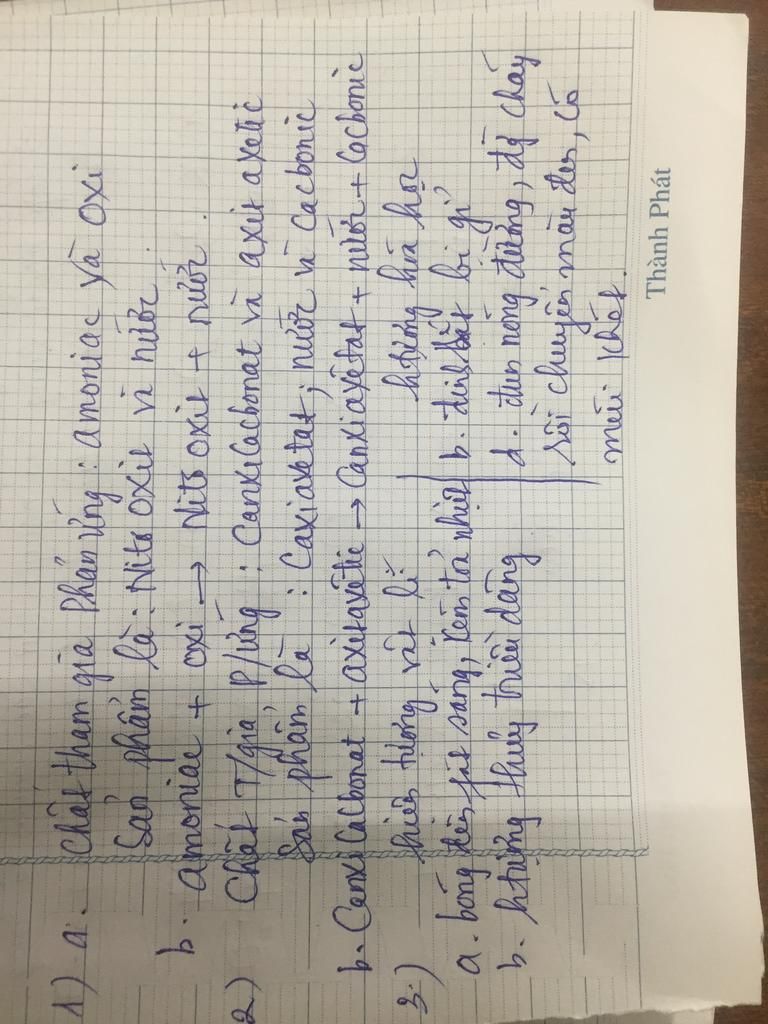 1) a. Chất tham gia phản ứng: amoniac và oxi
Sản phẩm là: Nitơ oxit và nước.
b. amoniac + oxi → Nitơ oxit + nước.
2) Chất T/gia P/ứng: CanxiCacbonat và axit axetic
Sản phẩm là: Caxiaxetat; nước và Cacbonic
b. CanxiCacbonat + axitaxêtic → Canxiaxêtat + nước + Cacbonic
3.) hiện tượng vật lí htượng hóa học
a. bóng đèn phát sáng, kèm toả nhiệt b. đinh sắt bị gỉ
b. htượng thuỷ triều dâng d. đun nóng đường, đg chảy
rồi chuyển màu đen, có
mùi khét.
Thành Phát